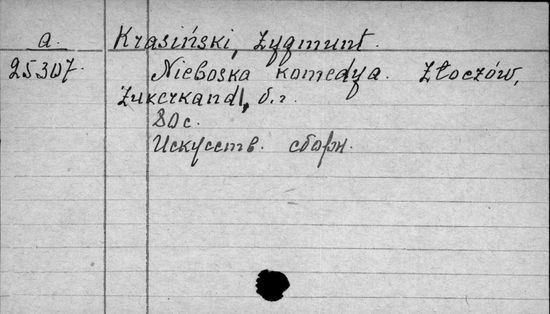 a. Krasiński, Zygmunt.
25307. Nieboska komedya. Złoczów,
Zukerkandl, б.г.
80с.
Искусств. сборн.